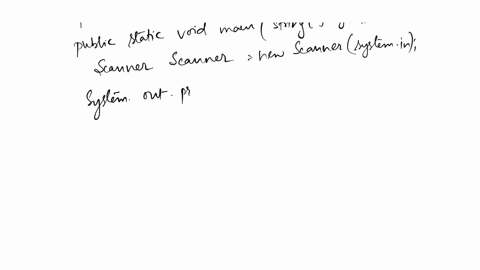 public static void main(String[]
Scanner Scanner = new Scanner(system.in);
System. out. pr